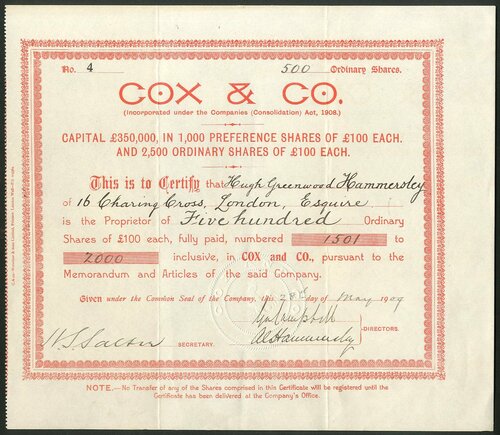 No. 4 500 Ordinary Shares.
COX & CO.
(Incorporated under the Companies (Consolidation) Act, 1908.)
CAPITAL £350,000, IN 1,000 PREFERENCE SHARES OF £100 EACH.
AND 2,500 ORDINARY SHARES OF £100 EACH.
This is to Certify that Hugh Greenwood Hammersley
of 16 Charing Cross, London, Esquire
is the Proprietor of Five hundred Ordinary
Shares of £100 each, fully paid, numbered 1501 to
2000 inclusive, in COX and CO., pursuant to the
Memorandum and Articles of the said Company.
Given under the Common Seal of the Company, this day of May 1909
DIRECTORS.
SECRETARY.
NOTE.—No Transfer of any of the Shares comprised in this Certificate will be registered until the
Certificate has been delivered at the Company's Office.